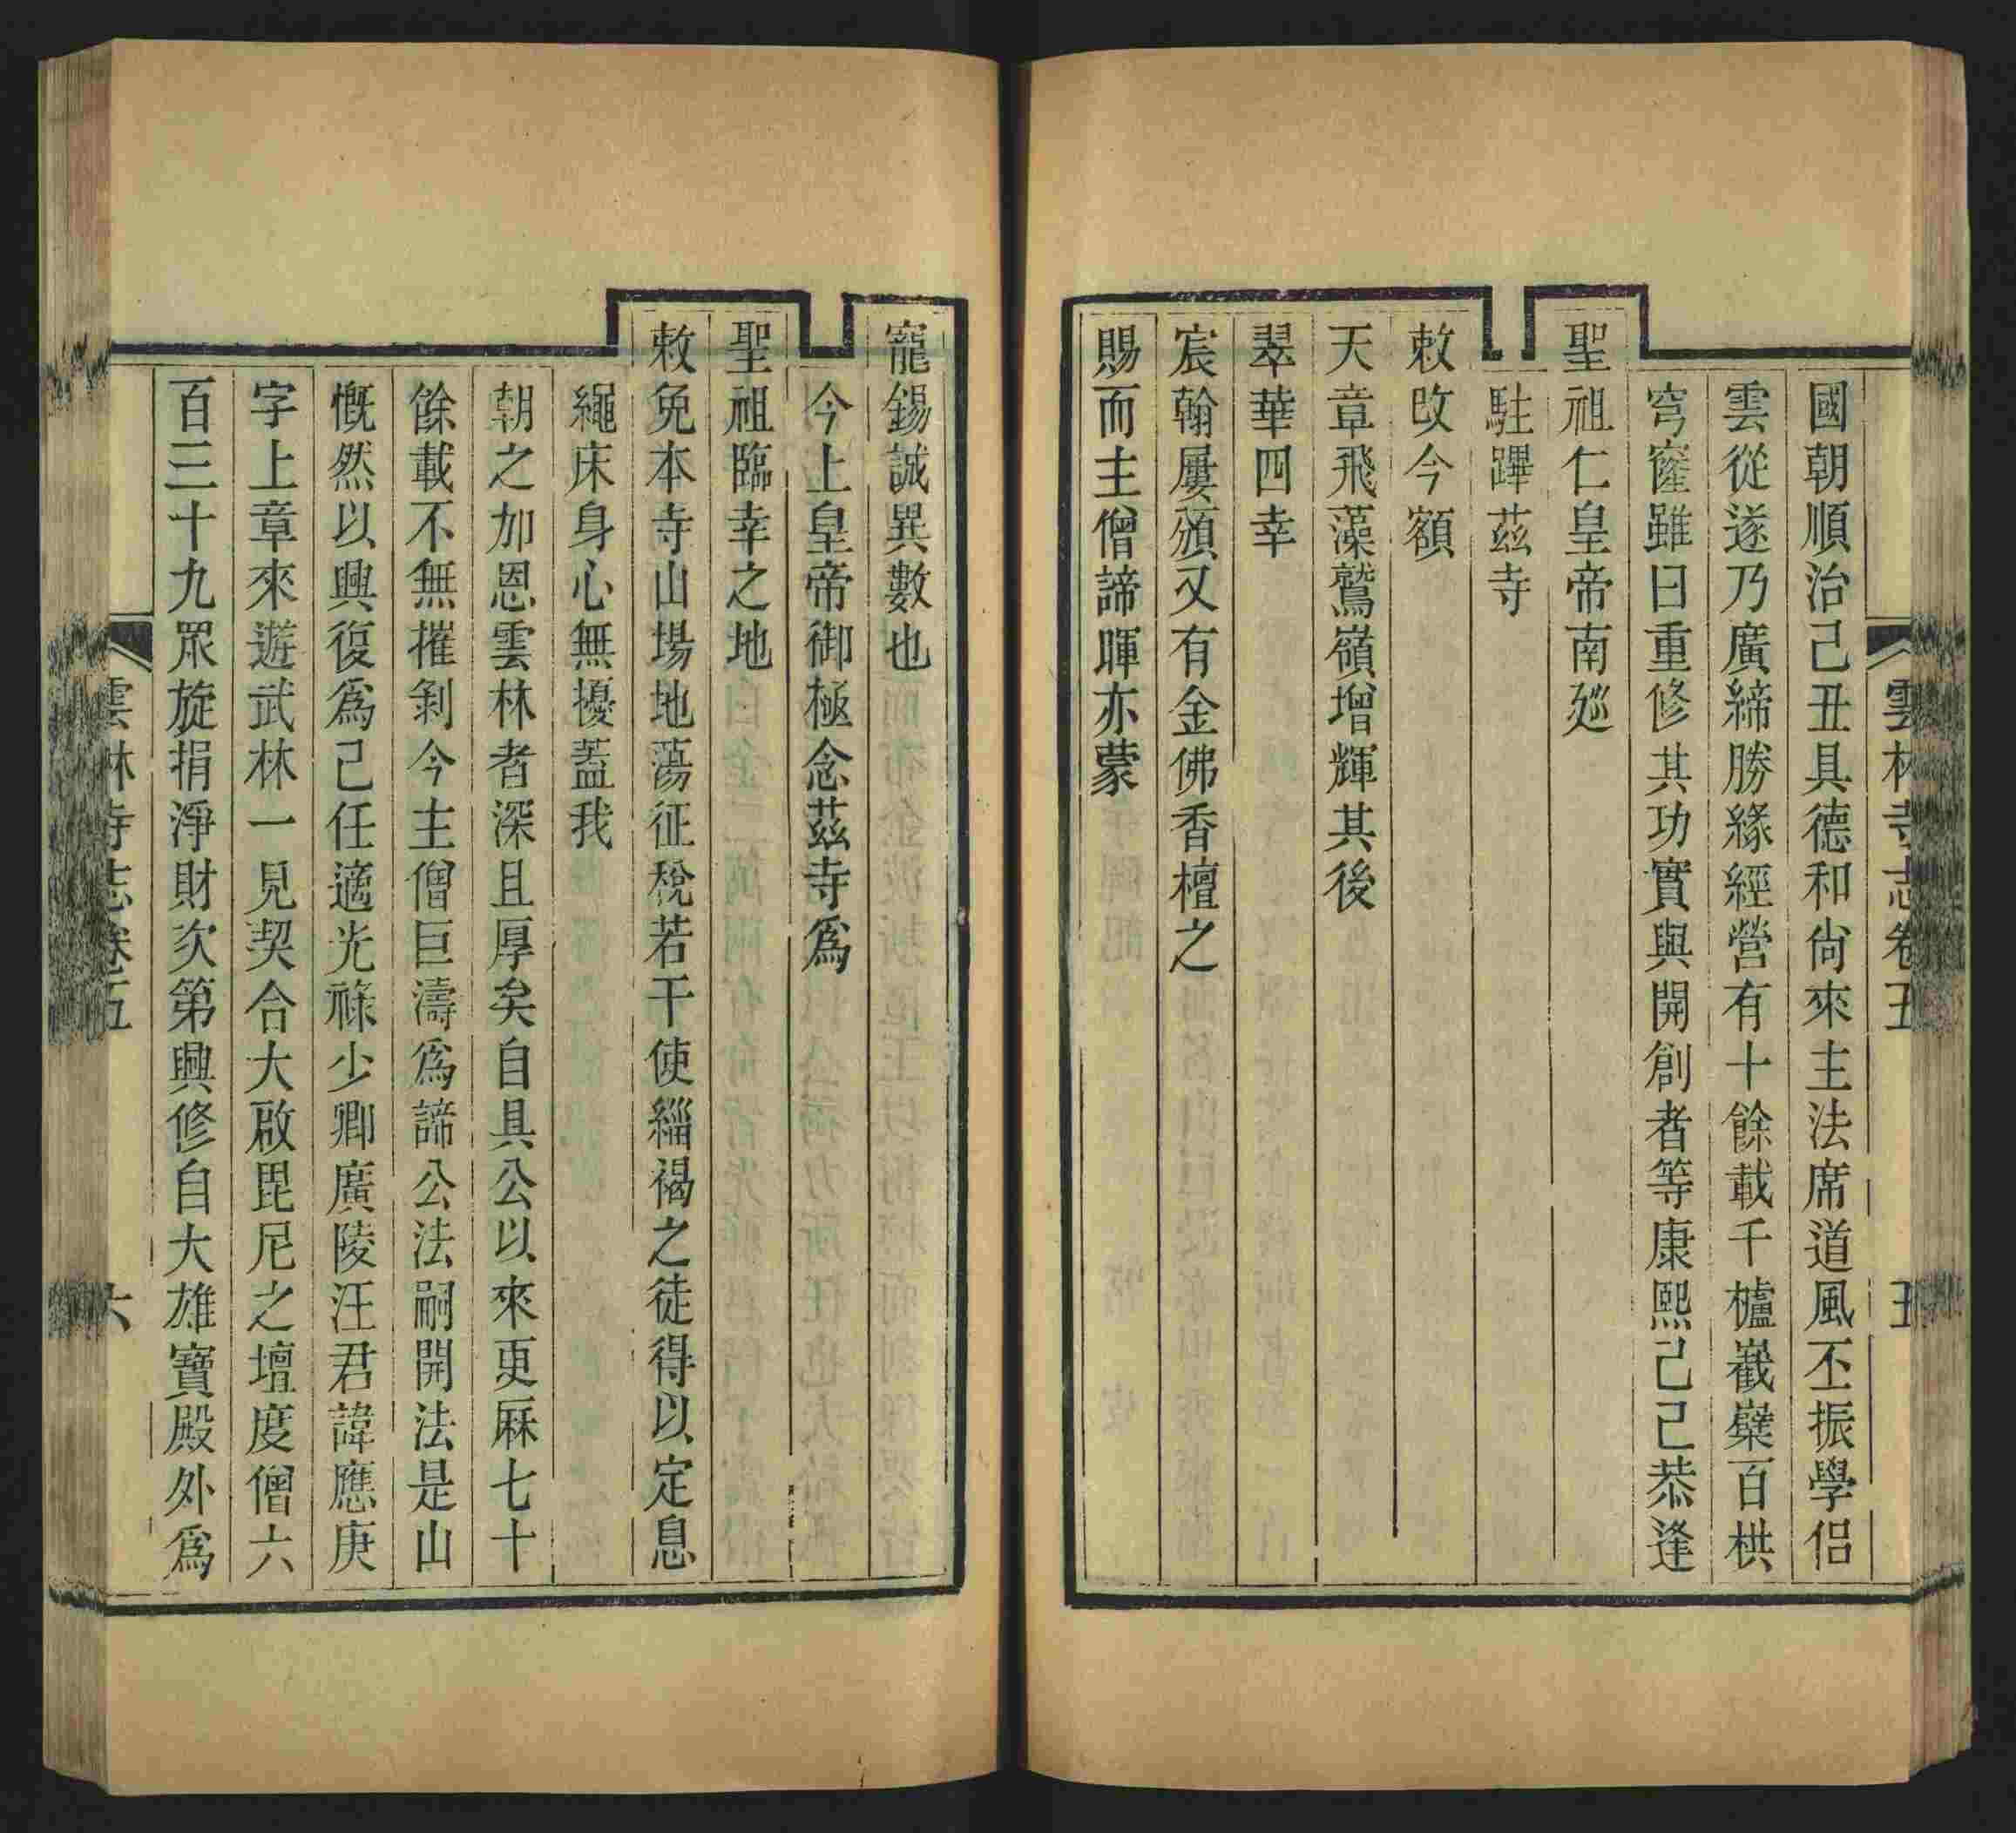 雲林寺志卷五
五
國朝順治己丑具德和尙來主法席道風丕振學侣
雲從遂乃廣締勝緣經營有十餘載千櫨嶻嶪百栱
穹窿雖曰重修其功實與開創者等康熙己巳恭逢
聖祖仁皇帝南廵
駐蹕茲寺
敕改今額
天章飛藻鷲嶺增輝其後
翠華四幸
宸翰屢頒又有金佛香檀之
賜而主僧諦暉亦蒙
寵錫誠異數也
今上皇帝御極念茲寺爲
聖祖臨幸之地
敕免本寺山場地蕩征稅若干使緇褐之徒得以定息
繩床身心無擾蓋我
朝之加恩雲林者深且厚矣自具公以來更厤七十
餘載不無摧剝今主僧巨濤爲諦公法嗣開法是山
慨然以興復爲己任適光祿少卿廣陵汪君諱應庚
字上章來遊武林一見契合大啟毘尼之壇度僧六
百三十九眾旋捐淨財次第興修自大雄寶殿外爲
雲林寺志卷五
六